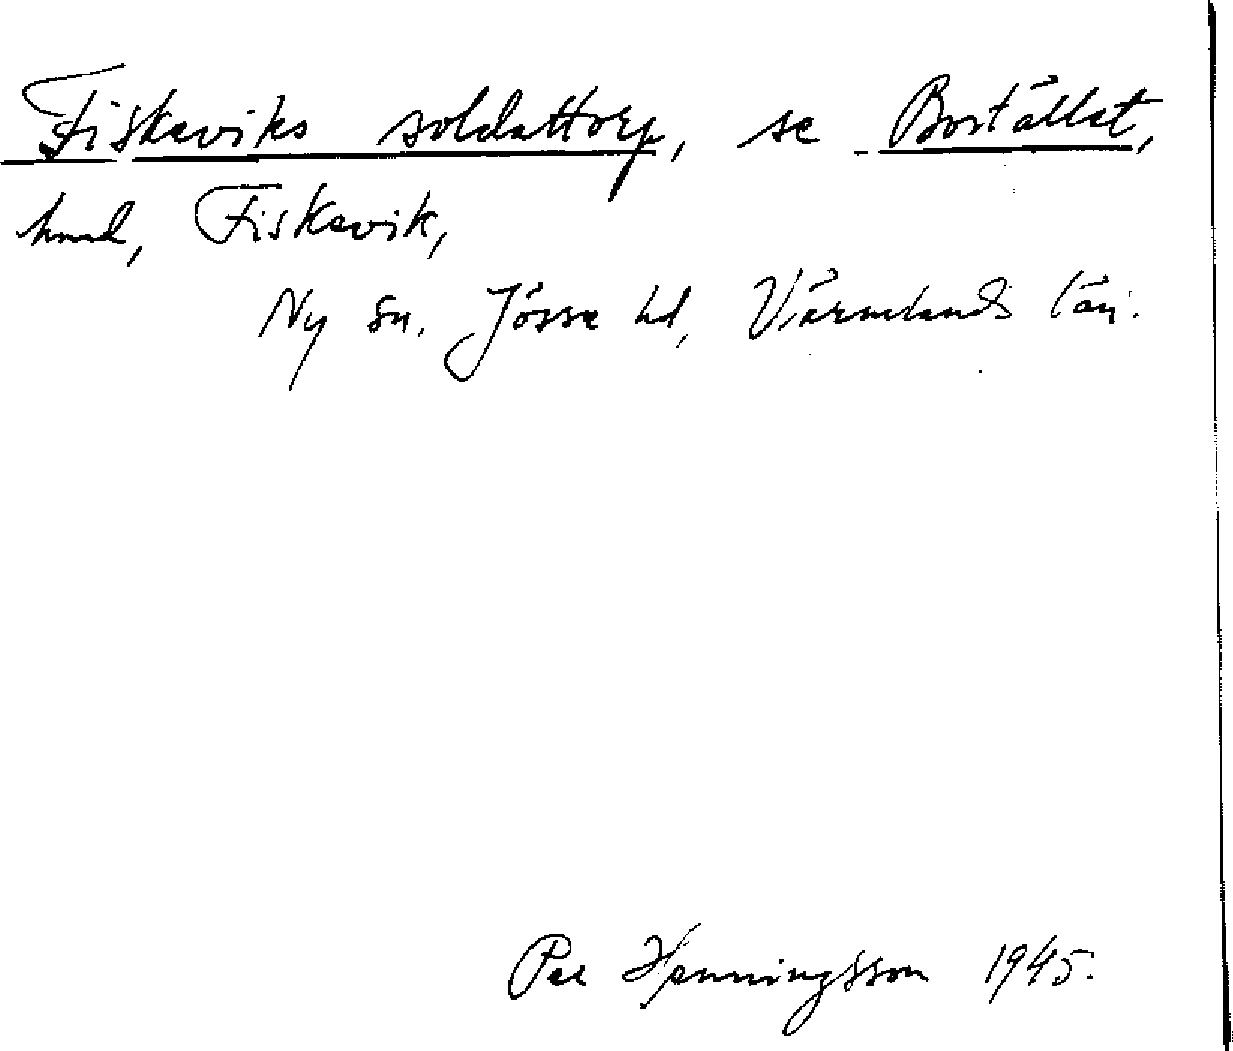 Fiskeviks soldattorp, se Bostället,
hmd, Fiskevik,
Ny sn. Jösse hd, Värmlands län.
Per Henningsson 1945.